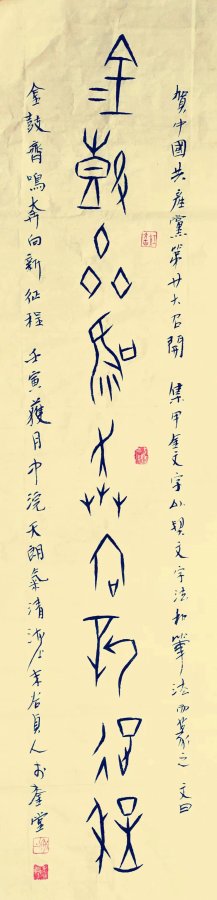 賀中國共產黨第廿大召開 集甲金文字以契文字法和筆法而篆之 文曰
金鼓齊鳴奔向新征程
金鼓齊鳴奔向新征程 壬寅獲月中浣天朗氣清海上 貞人於 堂